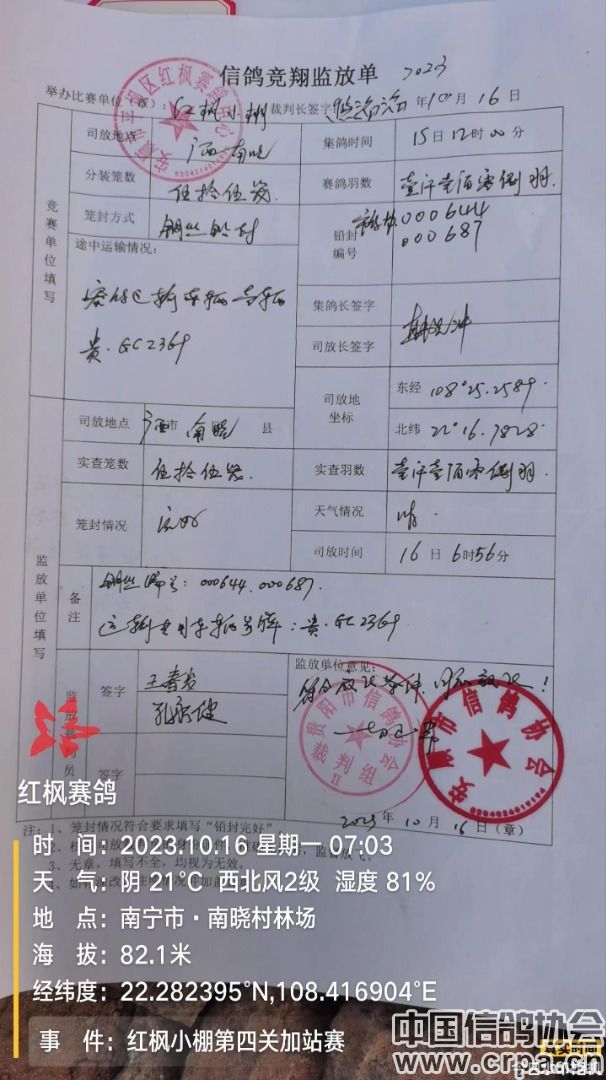 信鸽竞翔监放单 2023
举办比赛单位（章）：红枫小棚 裁判长签字： 年10月16日
竞赛单位填写
司放地点 广西南晓 集鸽时间 15日12时00分
分装笼数 伍拾伍笼 赛鸽羽数 壹仟壹佰零捌羽
笼封方式 钢丝铅封 铅封编号 000644
000687
途中运输情况：
贵·GC2369
集鸽长签字
司放长签字
司放地坐标 东经 108°25.2589
北纬 22°16.7828
监放单位填写
司放地点 广西市南晓县
实查笼数 伍拾伍笼 实查羽数 壹仟壹佰零捌羽
笼封情况 完好 天气情况 晴
司放时间 16日6时56分
备注 钢丝编号：000644.000687
运输专用车辆号牌：贵·GC2369
监放裁判员
签字 王春发
签字
监放单位意见：
符合放飞条件，同意放飞！
2023年10月16日（章）
贵阳市信鸽协会
裁判组
II
安顺市信鸽协会
注：1、笼封情况符合要求填写“铅封完好”
3、无章，填写不全，均视为无效。
红枫赛鸽
时 间：2023.10.16 星期一 07:03
天 气：阴 21℃ 西北风2级 湿度 81%
地 点：南宁市·南晓村林场
海 拔：82.1米
经纬度：22.282395°N,108.416904°E
事 件：红枫小棚第四关加站赛
中国信鸽协会
www.crpa.cn